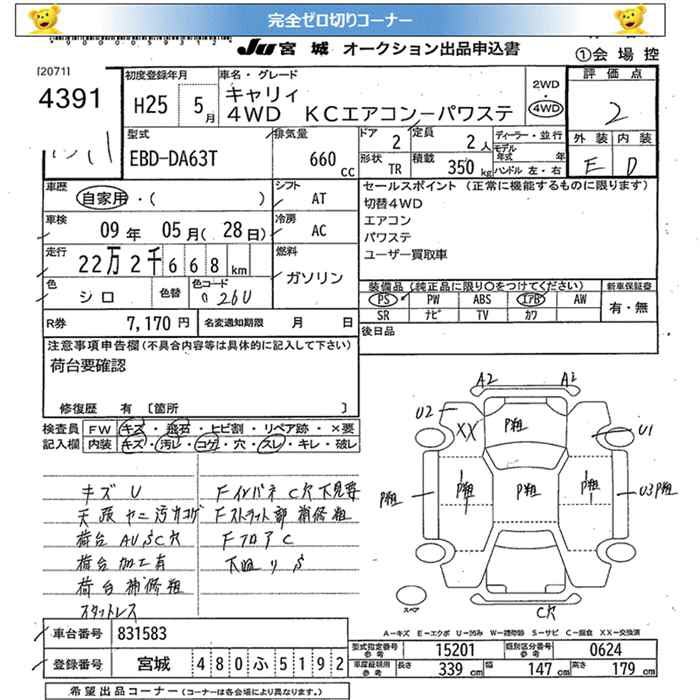 完全ゼロ切りコーナー
JU 宮城 オークション出品申込書
①会場控
[2071]
4391
初度登録年月
H25 5月
車名・グレード
キャリィ
4WD KCエアコン−パワステ
2WD
・
4WD
評価点
2
外装 内装
E D
型式
EBD-DA63T
排気量
660 CC
ドア 2
定員 2人
形状 TR
積載 350kg
ディーラー・並行
モデル年式 年
ハンドル 左・右
車歴
自家用・( )
シフト
AT
車検
09年 05月(28日)
冷房
AC
走行
22万2千668km
燃料
ガソリン
色
シロ
色替
色コード
26U
R券 7,170円
名変通知期限 月 日
セールスポイント(正常に機能するものに限ります)
切替4WD
エアコン
パワステ
ユーザー買取車
装備品(純正品に限り○をつけてください)
新車保証書
PS PW ABS エアB AW
SR ナビ TV カワ
有・無
後日品
注意事項申告欄(不具合内容等は具体的に記入して下さい)
荷台要確認
修復歴 有 [箇所 ]
検査員記入欄
FW キズ・飛石・ヒビ割・リペア跡・×要
内装 キズ・汚レ・コゲ・穴・スレ・キレ・破レ
キズU
天張ヤニ汚れコゲ
荷台AUSC穴
荷台加工有
荷台補修粗
スタットレス
FインパネC穴下見要
Fストラット部補修粗
FフロアC
下廻りS
A2
A2
U2
XX
P粗
U1
P粗
P粗
P粗
P粗
U3P粗
スペア
C穴
A−キズ E−エクボ U−凹み W−補修跡 S−サビ C−腐食 XX−交換済
車台番号 831583
登録番号 宮城 480ふ5192
型式指定番号 参考 15201
類別区分番号 参考 0624
車庫証明用 参考 長さ 339cm 幅 147cm 高さ 179cm
希望出品コーナー(コーナーは各会場により異なります。)